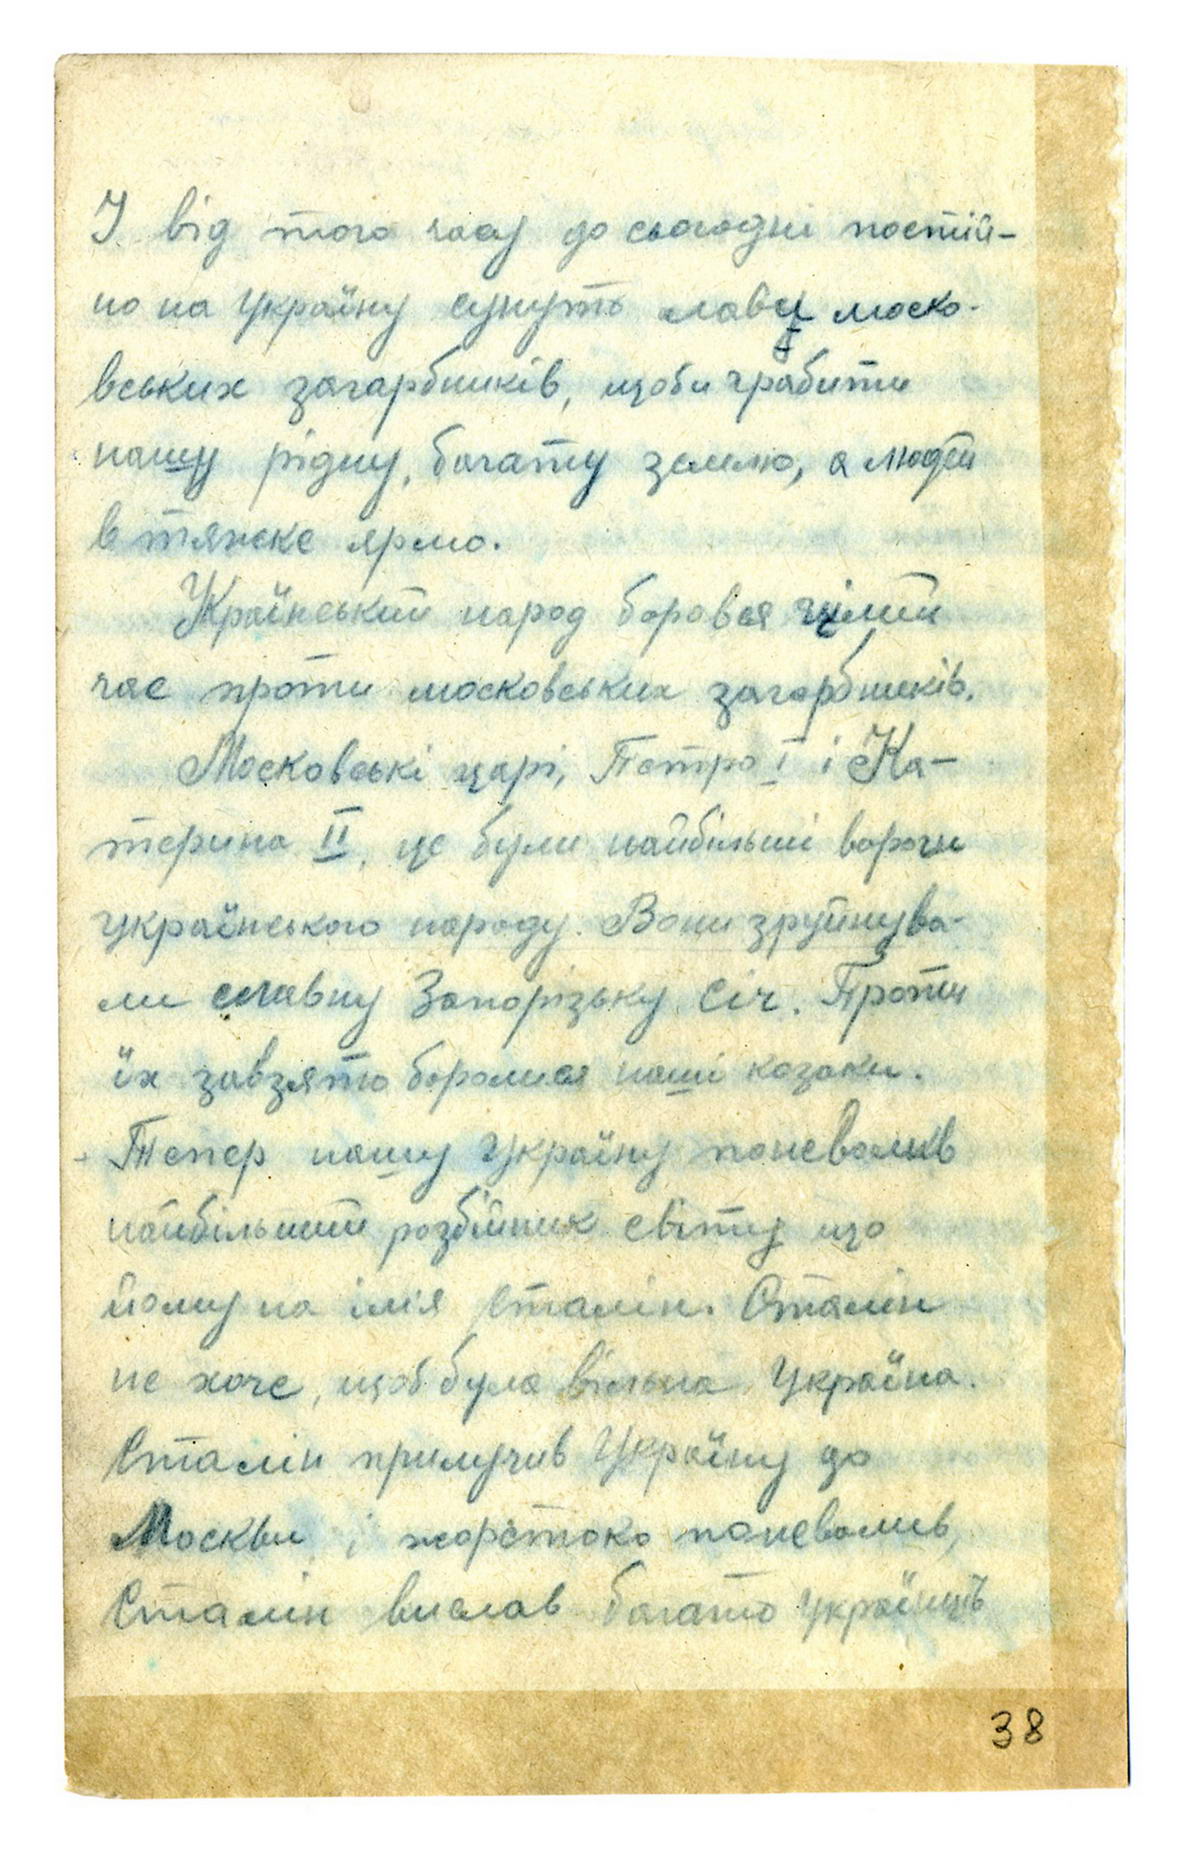 І від того часу до сьогодні постій-
но на Україну сунуть лави моско-
вських загарбників, щоби грабити
нашу рідну, багату землю, а людей
в тяжке ярмо.
Український народ боровся цілий
час проти московських загарбників.
Московські царі, Петро І і Ка-
терина ІІ, це були найбільші вороги
українського народу. Вони зруйнува-
ли славну Запорізьку Січ. Проти
їх завзято боролися наші козаки.
Тепер нашу Україну поневолив
найбільший розбійник світу що
йому на імя Сталін. Сталін
не хоче, щоб була вільна Україна.
Сталін прилучив Україну до
Москви і жорстоко поневолив,
Сталін вислав багато українців
38